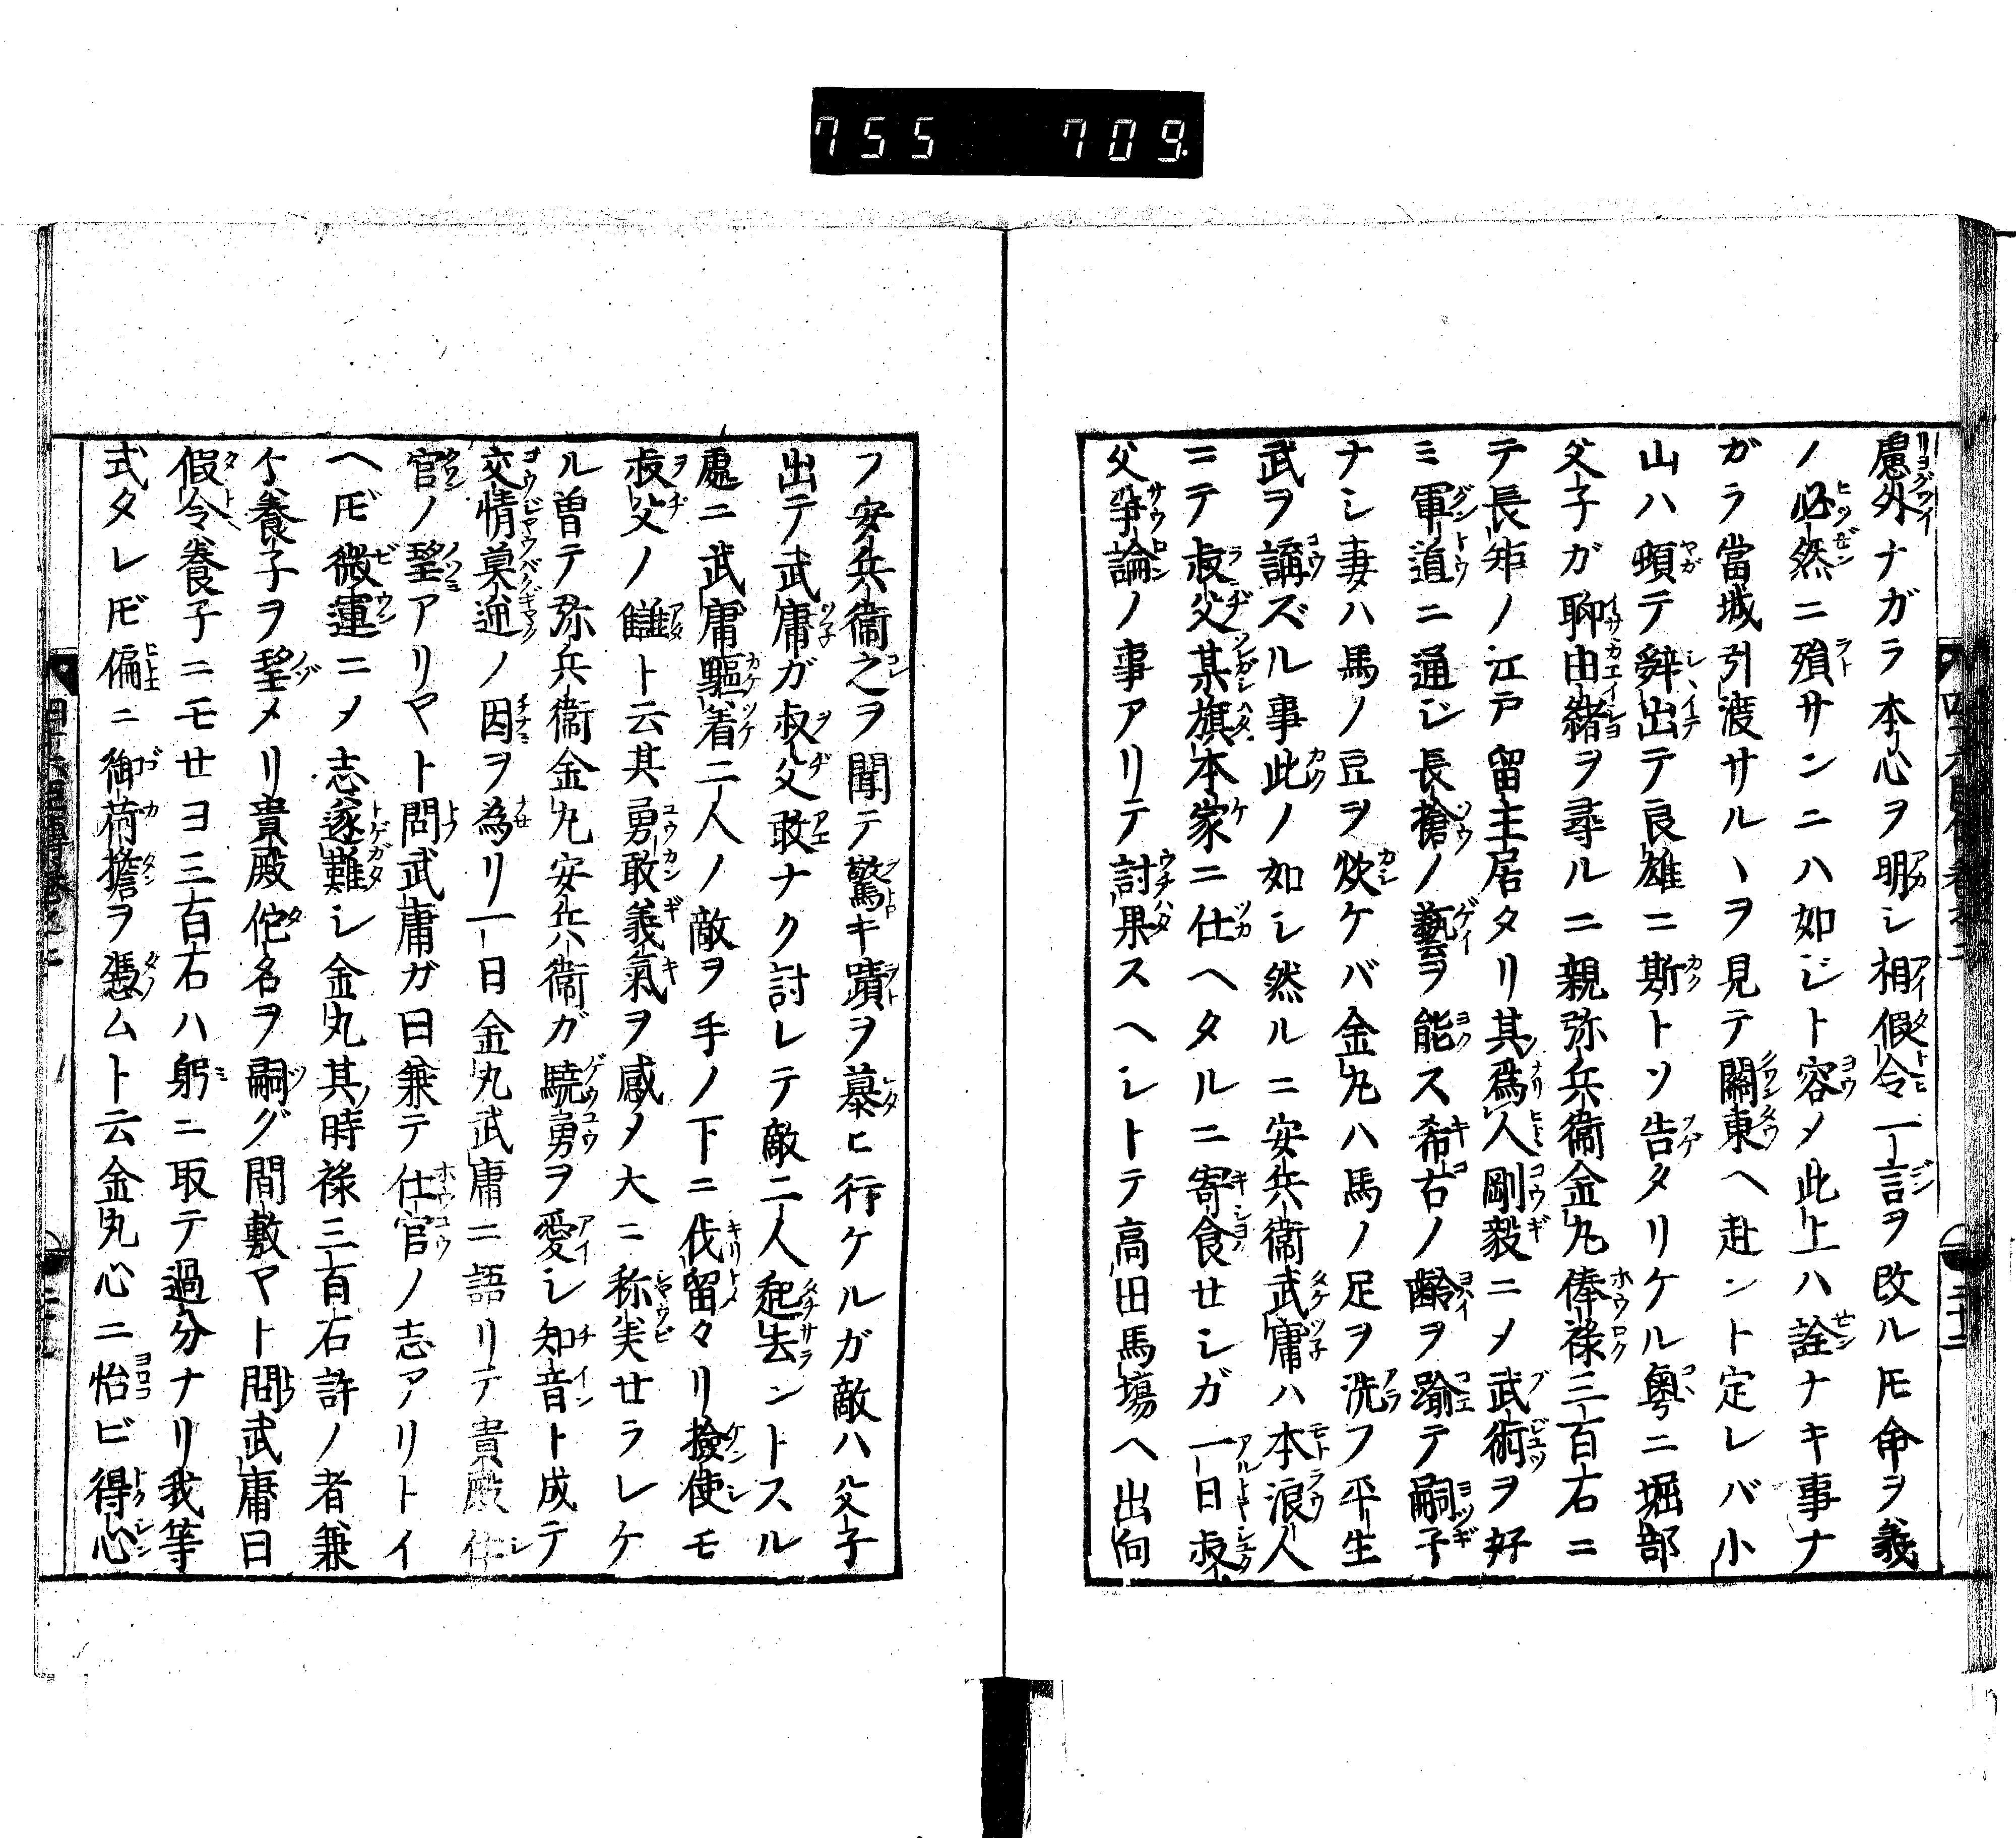 755 709
慮外ナガラ本心ヲ明シ相假令一言ヲ改ル𪜈命ヲ義
ノ必然ニ殞サンニハ如ジト容メ此上ハ詮ナキ事ナ
ガラ當城引渡サルヽヲ見テ關東ヘ赴ント定レバ小
山ハ頓テ辭出テ良雄ニ斯トソ告タリケル粤ニ堀部
父子ガ聊由緒ヲ尋ルニ親弥兵衞金丸俸禄三百石ニ
テ長矩ノ江戸留主居タリ其爲人剛毅ニメ武術ヲ好
ミ軍道ニ通ジ長槍ノ藝ヲ能ス希古ノ齡ヲ踰テ嗣子
ナシ妻ハ馬ノ豆ヲ炊ケバ金丸ハ馬ノ足ヲ洗フ平生
武ヲ講ズル事此ノ如シ然ルニ安兵衞武庸ハ本浪人
ニテ叔父某旗本家ニ仕ヘタルニ寄食セシガ一日叔
父爭論ノ事アリテ討果スヘシトテ高田馬塲ヘ出向
フ安兵衞之ヲ聞テ驚キ蹟ヲ慕ヒ行ケルガ敵ハ父子
出テ武庸ガ叔父敢ナク討レテ敵二人起去ントスル
處ニ武庸驅着二人ノ敵ヲ手ノ下ニ伐留々リ撿使モ
叔父ノ讎ト云其勇敢義氣ヲ感メ大ニ称美せラレケ
ル曽テ弥兵衞金丸安兵衞ガ驍勇ヲ愛シ知音ト成テ
交情莫逆ノ因ヲ為リ一日金丸武庸ニ語リテ貴殿仕
官ノ望アリヤト問武庸ガ曰兼テ仕官ノ志アリトイ
ヘ𪜈微運ニメ志遂難シ金丸其時禄三百石許ノ者兼
テ養子ヲ望メリ貴殿佗名ヲ嗣グ間敷ヤト問武庸曰
假令養子ニモせヨ三百石ハ躬ニ取テ過分ナリ我等
式タレ𪜈偏ニ御荷擔ヲ憑ムト云金丸心ニ怡ビ得心